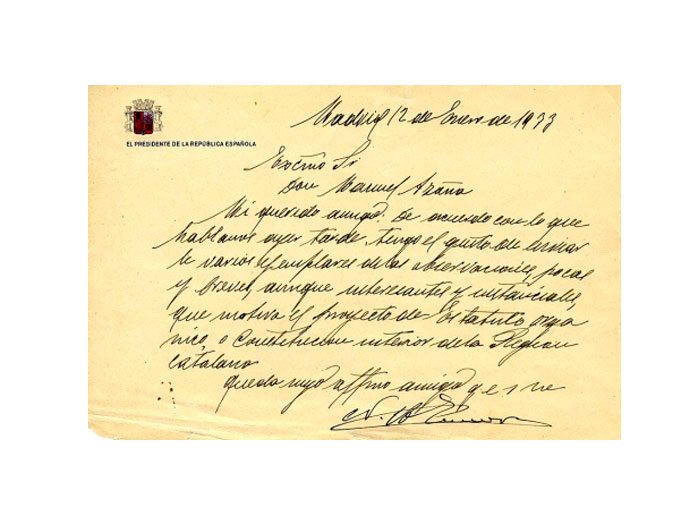 EL PRESIDENTE DE LA REPÚBLICA ESPAÑOLA
Madrid 12 de Enero de 1933
Excmo Sr
Don Manuel Azaña
Mi querido amigo: De acuerdo con lo que
hablamos ayer tarde tengo el gusto de enviar
le varios ejemplares de las observaciones, pocas
y breves, aunque interesantes y sustanciales,
que motiva el proyecto de Estatuto orgá
nico, o Constitucion interior de la Region
catalana
Queda suyo affmo amigo q e s m